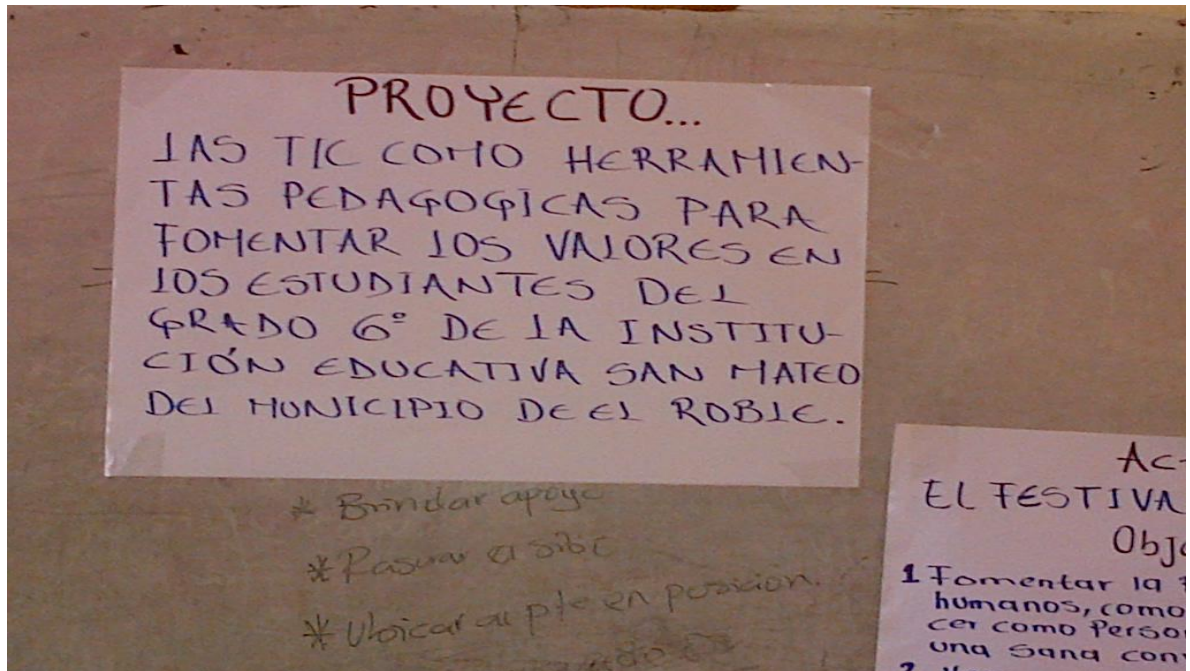 PROYECTO...
LAS TIC COMO HERRAMIEN-
TAS PEDAGOGICAS PARA
FOMENTAR LOS VALORES EN
LOS ESTUDIANTES DEL
GRADO 6° DE LA INSTITU-
CIÓN EDUCATIVA SAN MATEO
DEL MUNICIPIO DE EL ROBLE.
* Brindar apoyo
* Rasurar el sitio
* Ubicar au pte en posición.
AC
EL FESTIVA
Obj
1 Fomentar la
humanos, como
cer como Perso
una sana con